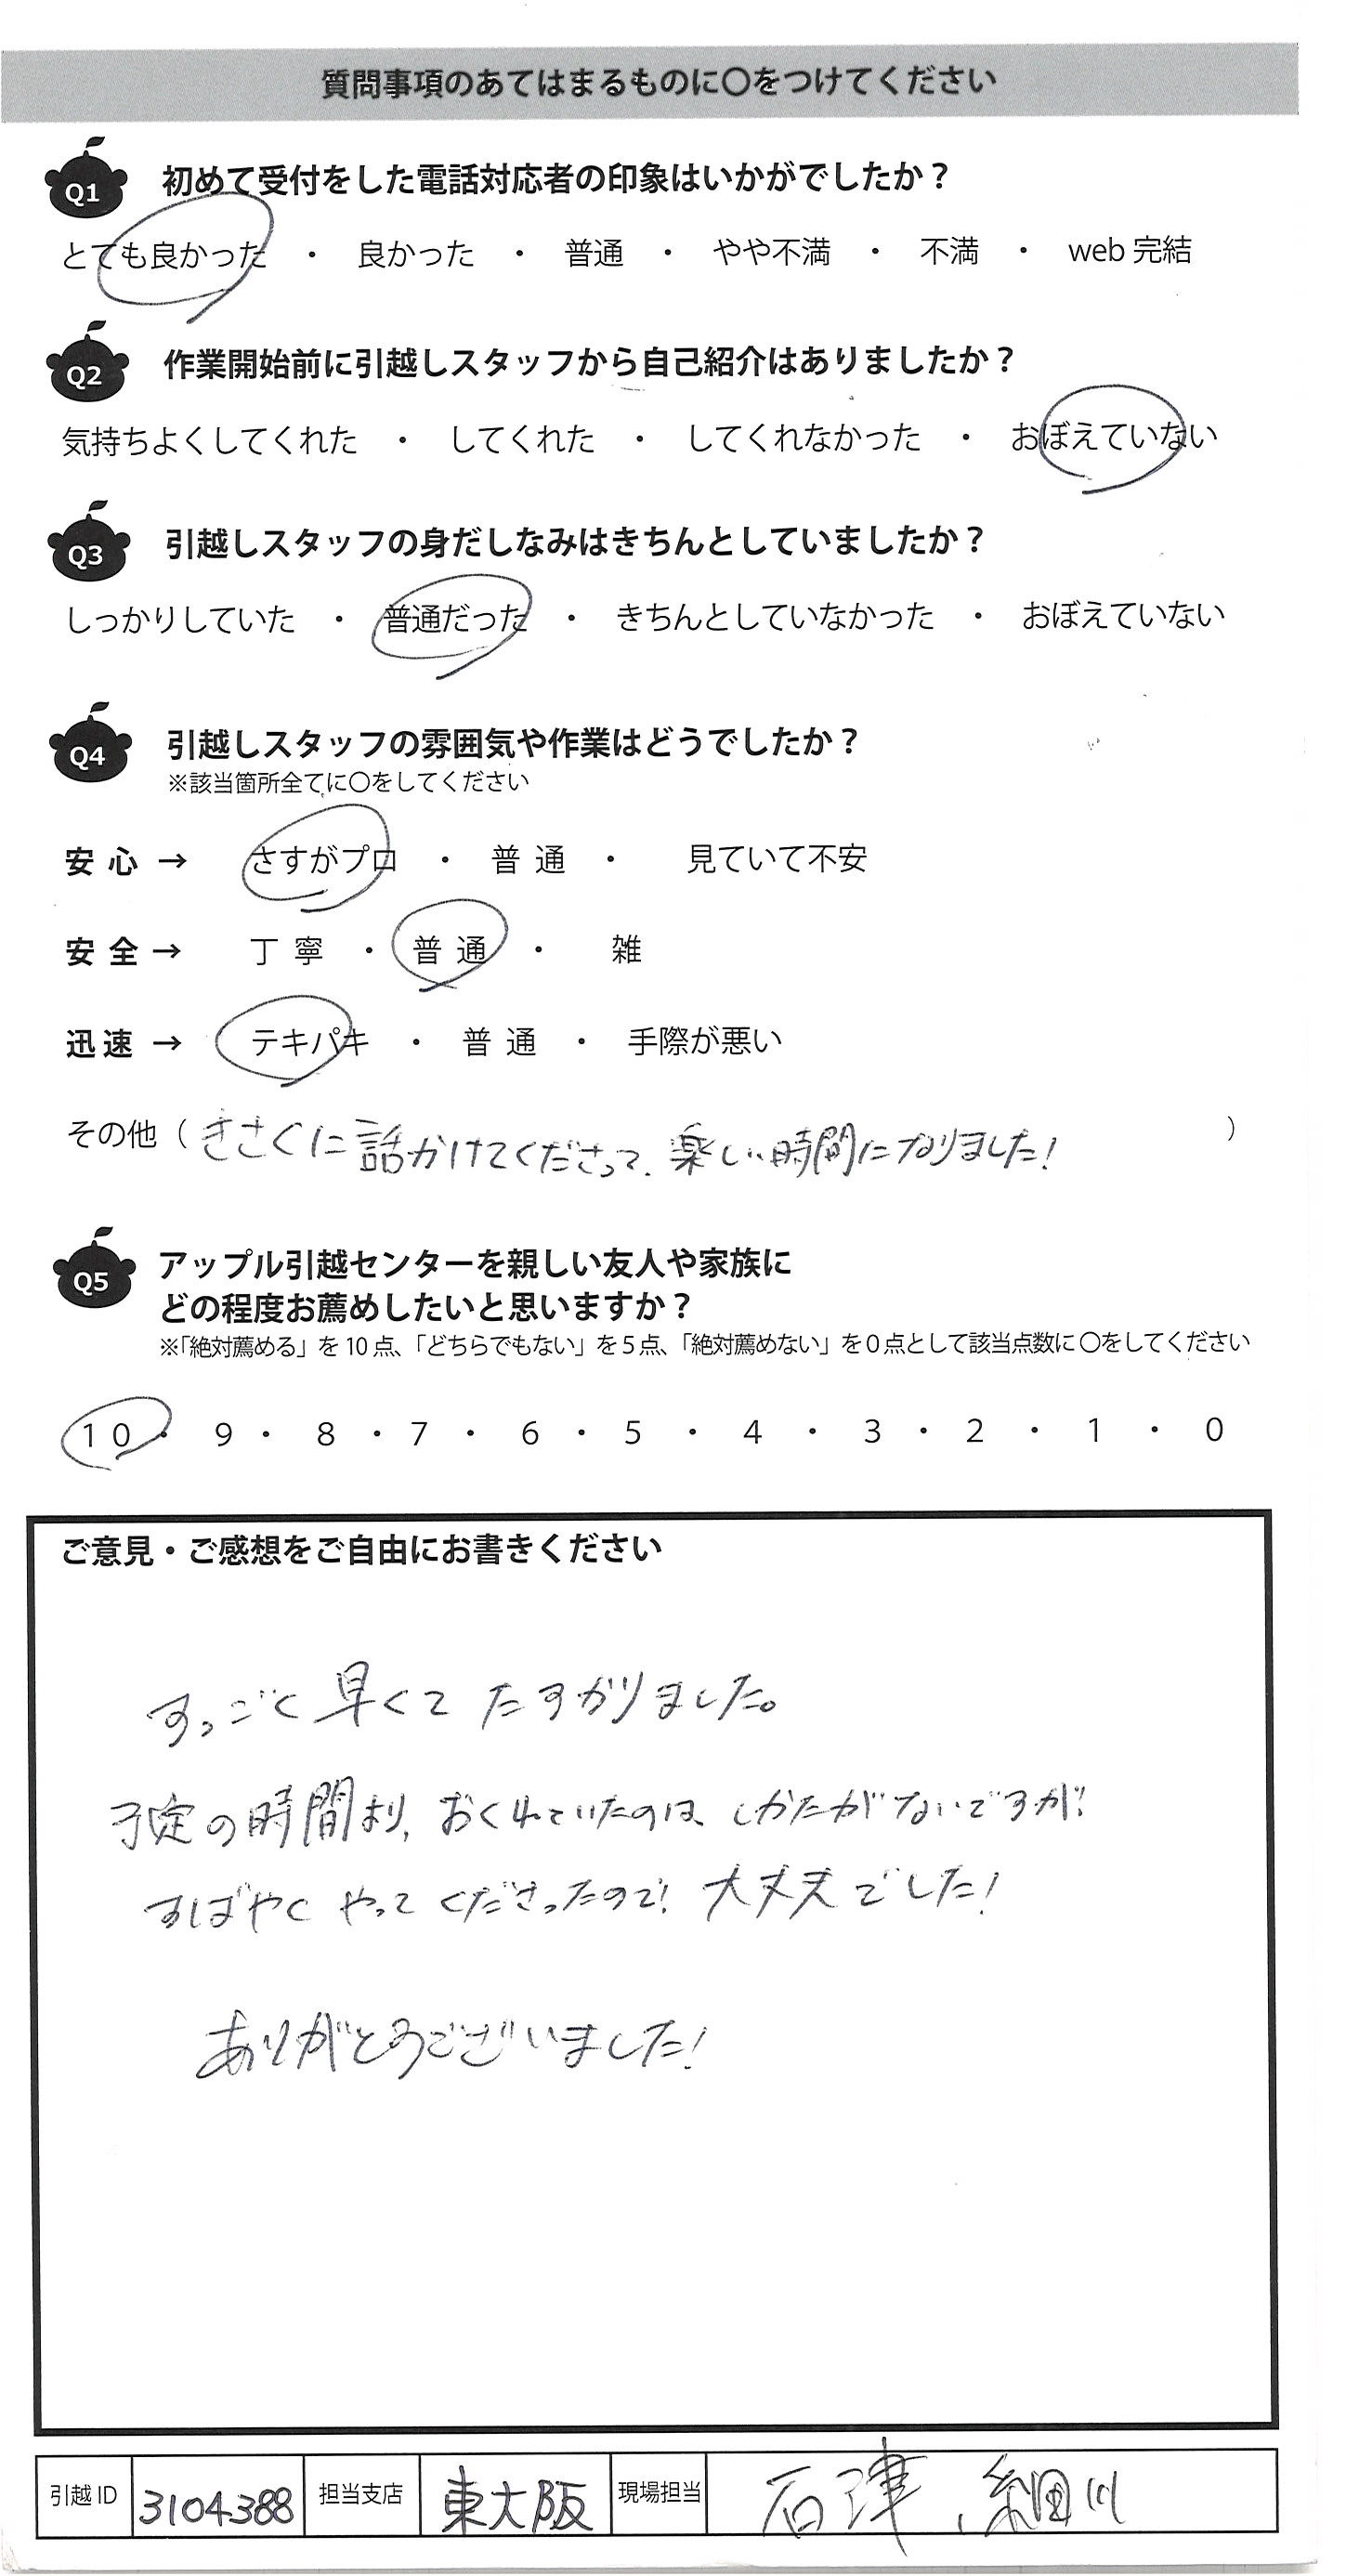 質問事項のあてはまるものに〇をつけてください
Q1 初めて受付をした電話対応者の印象はいかがでしたか？
とても良かった ・ 良かった ・ 普通 ・ やや不満 ・ 不満 ・ web 完結
Q2 作業開始前に引越しスタッフから自己紹介はありましたか？
気持ちよくしてくれた ・ してくれた ・ してくれなかった ・ おぼえていない
Q3 引越しスタッフの身だしなみはきちんとしていましたか？
しっかりしていた ・ 普通だった ・ きちんとしていなかった ・ おぼえていない
Q4 引越しスタッフの雰囲気や作業はどうでしたか？
※該当箇所全てに〇をしてください
安心 → さすがプロ ・ 普通 ・ 見ていて不安
安全 → 丁寧 ・ 普通 ・ 雑
迅速 → テキパキ ・ 普通 ・ 手際が悪い
その他（きさくに話かけてくださって、楽しい時間になりました！）
Q5 アップル引越センターを親しい友人や家族に
どの程度お薦めしたいと思いますか？
※「絶対薦める」を10点、「どちらでもない」を5点、「絶対薦めない」を0点として該当点数に〇をしてください
10 ・ 9 ・ 8 ・ 7 ・ 6 ・ 5 ・ 4 ・ 3 ・ 2 ・ 1 ・ 0
ご意見・ご感想をご自由にお書きください
すっごく早くてたすかりました。
予定の時間より、おくれていたのは、しかたがないですが、
すばやくやってくださったので！大丈夫でした！
ありがとうございました！
引越ID 3104388 担当支店 東大阪 現場担当 石津、細川